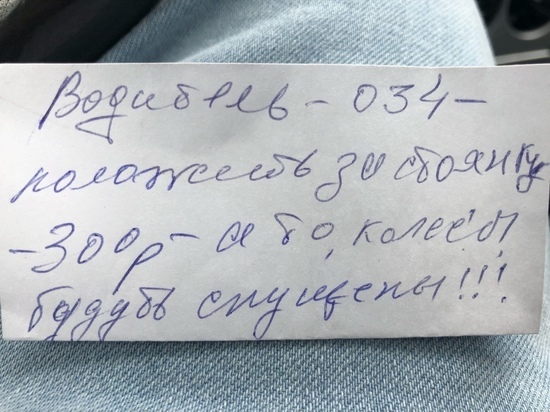 Водитель - 034 -
положить за стоянку
- 300р - а то, колёсы
будуть спущены!!!